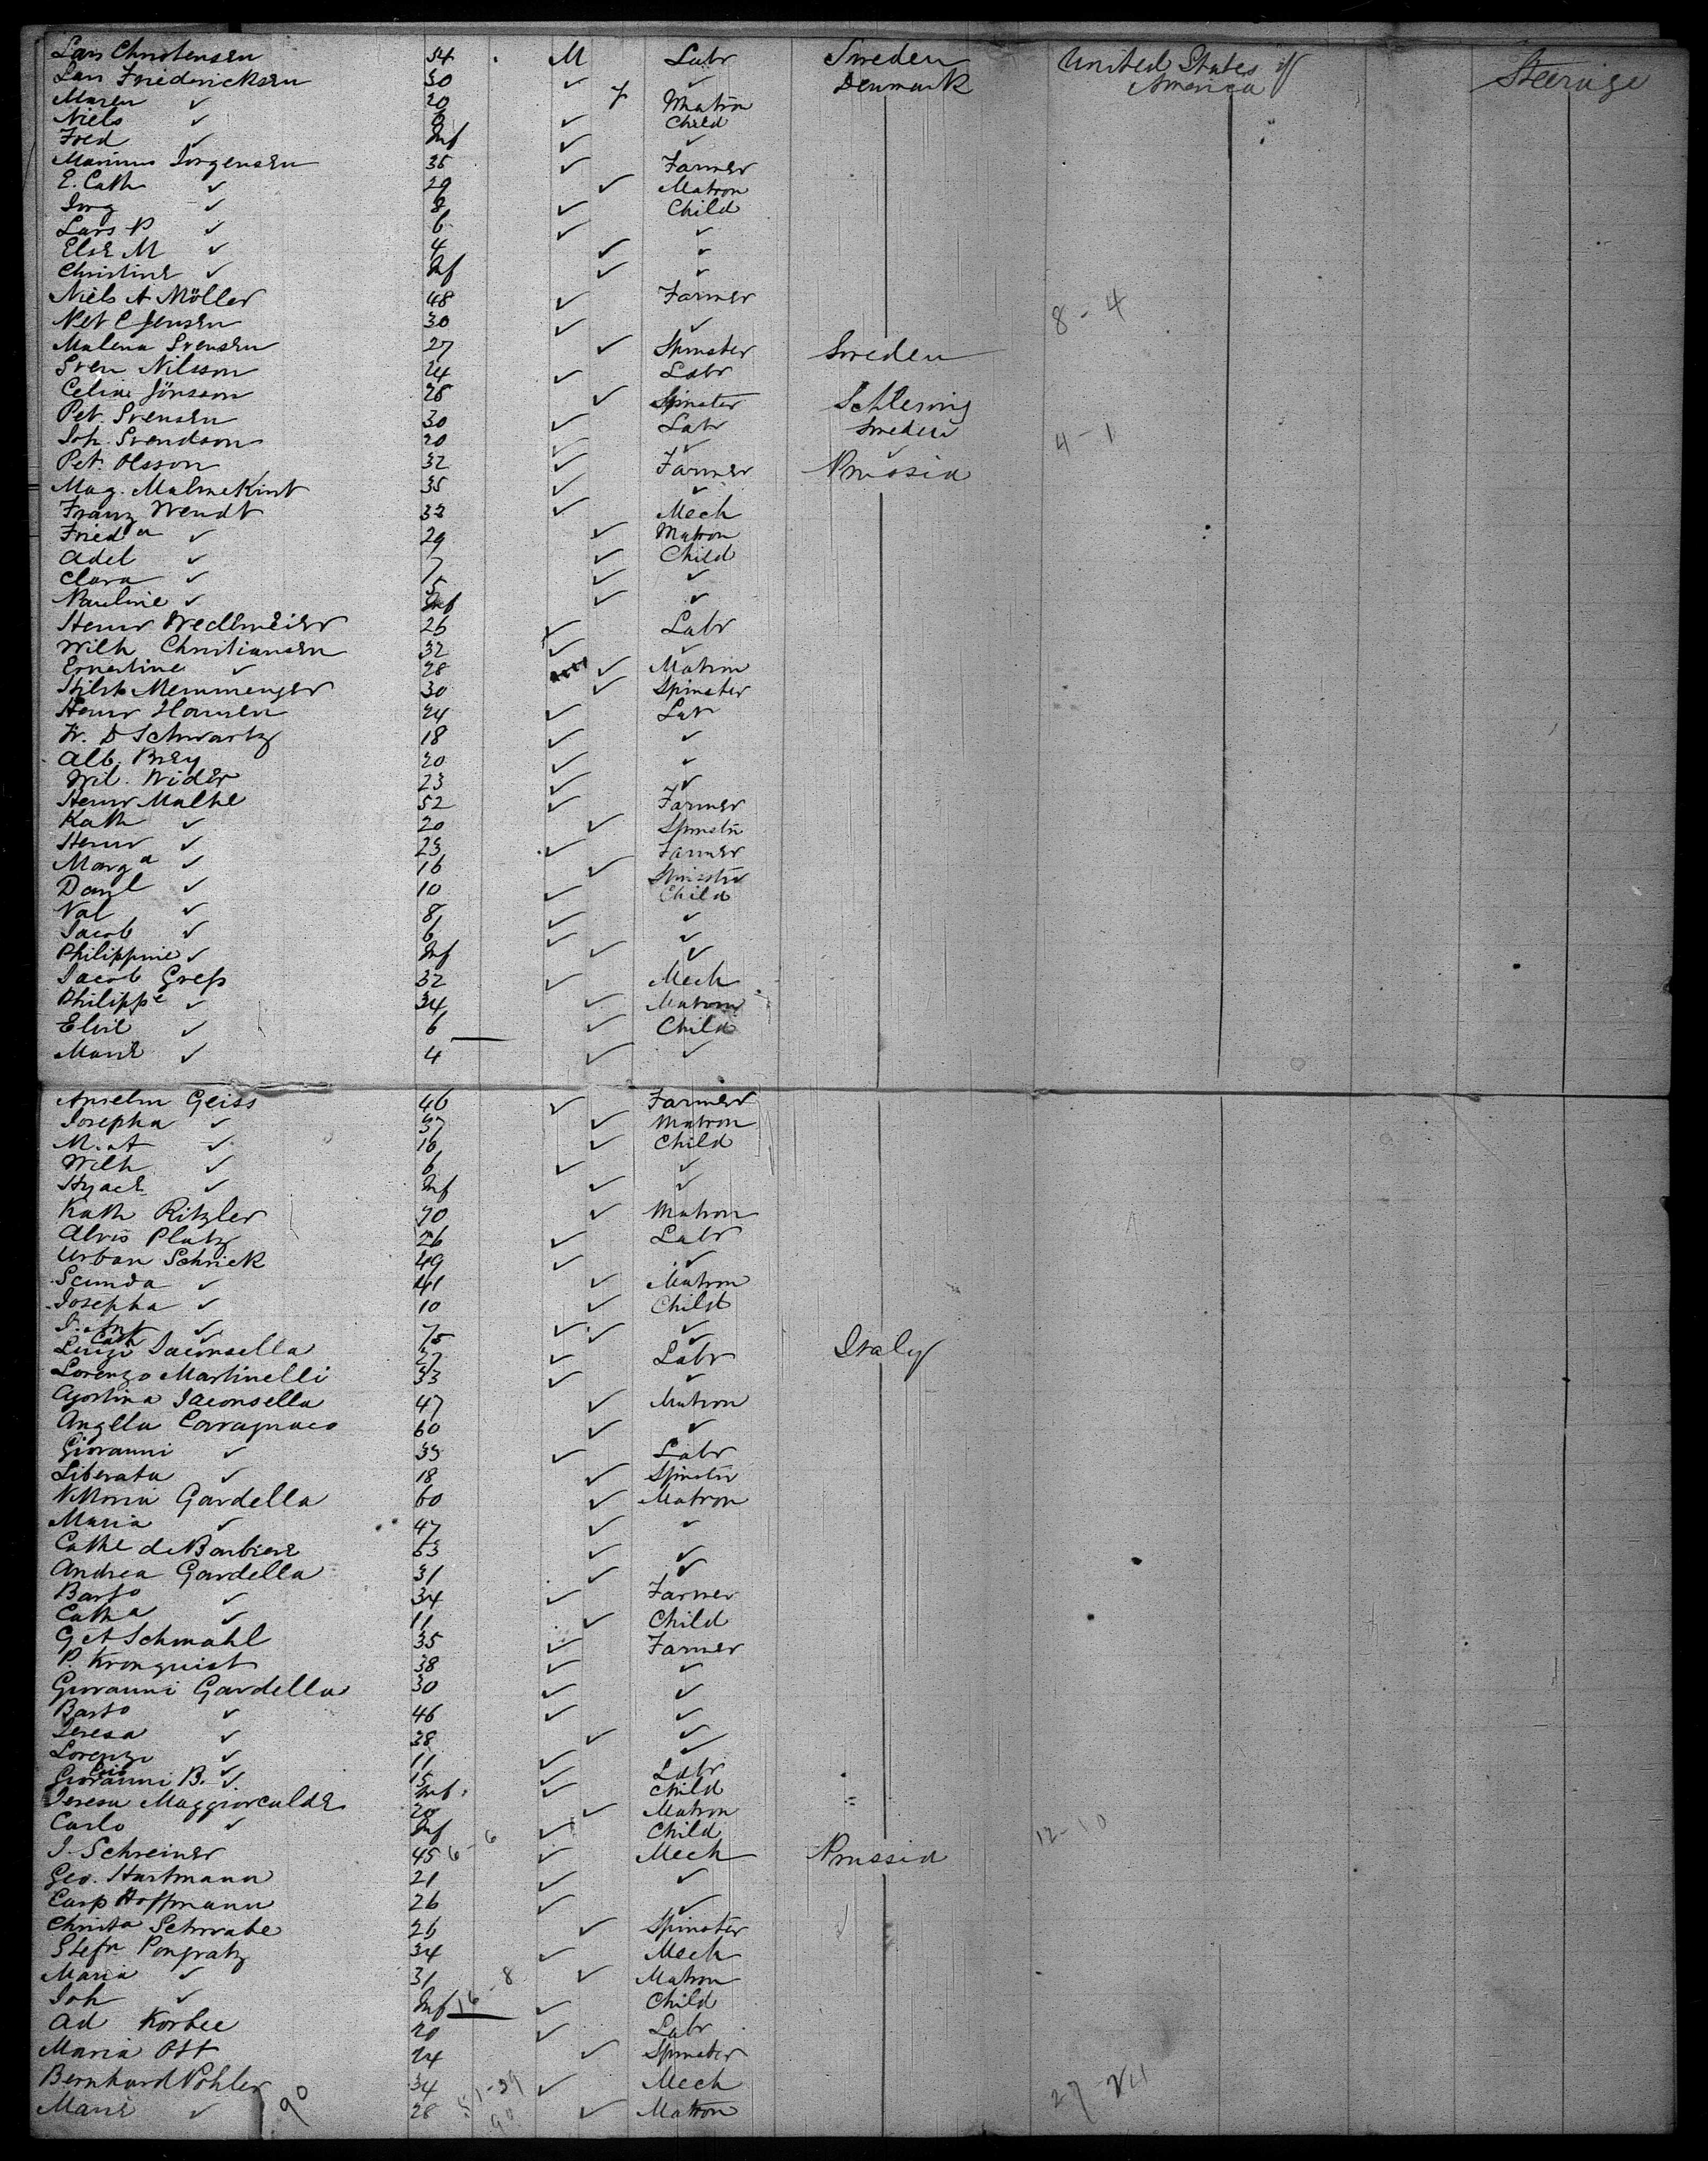 Lars Christensen 54 M Labr Sweden United States of America Steerage
Lars Friedericksen 30 ✓ ✓ Denmark
Maren ✓ 20 f Matron
Niels ✓ ✓ Child
Fred ✓ Inf ✓ ✓
Marinus Jorgensen 35 ✓ Farmer
E. Cath ✓ 29 ✓ Matron
Jorg ✓ 8 ✓ Child
Lars P ✓ 6 ✓ ✓
Else M ✓ 4 ✓ ✓
Christine ✓ Inf ✓ ✓
Niels A Möller 48 ✓ Farmer 8-4
Pet C Jensen 30 ✓ ✓
Malena Svensen 27 ✓ Spinster Sweden
Sven Nilsson 24 ✓ Labr
Celine Jönsson 28 ✓ Spinster
Pet. Svensen 30 ✓ Labr Sweden
Joh. Svendson 20 ✓ ✓ ✓ 4-1
Pet. Olsson 32 ✓ Farmer Prussia
Mag. Malmekint 35 ✓ ✓
Franz Wendt 32 ✓ Mech
Frieda ✓ 29 ✓ Matron
Adel ✓ 7 ✓ Child
Clara ✓ 5 ✓ ✓
Pauline ✓ Inf ✓ ✓
Henr Wedlmeier 26 ✓ Labr
Wilh Christiansen 32 ✓ ✓
Ernestine ✓ 28 ✓ Matron
Memmenger 30 ✓ Spinster
Henr Hansen 24 ✓ Labr
Fr. D Schwartz 18 ✓ ✓
Alb. Brey 20 ✓ ✓
Wil. Wider 23 ✓ ✓
Henr Malhe 52 ✓ Farmer
Kath ✓ 20 ✓ Spinstr
Henr ✓ 23 ✓ Farmer
Marga ✓ 16 ✓ Spinstr
Danl ✓ 10 ✓ Child
Val ✓ 8 ✓ ✓
Jacob ✓ 6 ✓ ✓
Philippine ✓ Inf ✓ ✓
Jacob Gress 32 ✓ Mech
Philippe ✓ 34 ✓ Matron
Elvil ✓ 6 ✓ Child
Marie ✓ 4 ✓ ✓
Anselm Geiss 46 ✓ Farmer
Josepha ✓ 37 ✓ Matron
M. A ✓ 10 ✓ Child
Wilh ✓ 6 ✓ ✓
Hyace ✓ Inf ✓ ✓
Kath Ritzler 70 ✓ Matron
Alvis Platz 26 ✓ Labr
Urban Schrick 49 ✓ ✓
Scunda ✓ 41 ✓ Matron
Josepha ✓ 10 ✓ Child
J. Ant ✓ 7 ✓ ✓
Cath ✓ 5 ✓ ✓
Luigi Iaconsella 27 ✓ Labr Italy
Lorenzo Martinelli 33 ✓ ✓
Agostina Iaconsella 47 ✓ Matron
Angella Carragnaco 60 ✓ ✓
Giovanni ✓ 33 ✓ Labr
Liberata ✓ 18 ✓ Spinstr
Gardella 60 ✓ Matron
Maria ✓ 47 ✓ ✓
Cathe de Barbiere 63 ✓ ✓
Andrea Gardella 31 ✓ ✓
Barto ✓ 34 ✓ Farmer
Catha ✓ 11 ✓ Child
G A Schmahl 35 ✓ Farmer
P. Kronquist 38 ✓ ✓
Giovanni Gardella 30 ✓ ✓
Barto ✓ 46 ✓ ✓
Teresa ✓ 38 ✓ ✓
Lorenzo ✓ 11 ✓ ✓
✓ 15 ✓ Labr
Giovanni B. ✓ Inf ✓ Child
Teresa Maggiorcalde 20 ✓ Matron
Carlo ✓ Inf ✓ Child 12-10
J. Schreiner 45 6-6 ✓ Mech Prussia
Geo. Hartmann 21 ✓ ✓
Casp Hoffmann 26 ✓ ✓
Christa Schwabe 26 ✓ Spinster
Stefn Pongratz 34 ✓ Mech
Maria ✓ 31 ✓ Matron
Joh ✓ Inf 16-8 ✓ Child
Ad Korbee 20 ✓ Labr
Maria Ott 24 ✓ Spinster
Bernhard Pohler 34 51-39 ✓ Mech
Marie ✓ 90 28 90 ✓ Matron